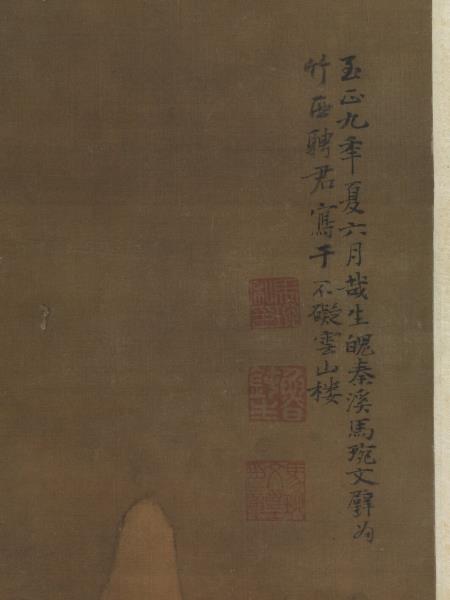 至正九年夏六月哉生魄秦溪馬琬文璧為
竹西聘君寫于不礙雲山楼